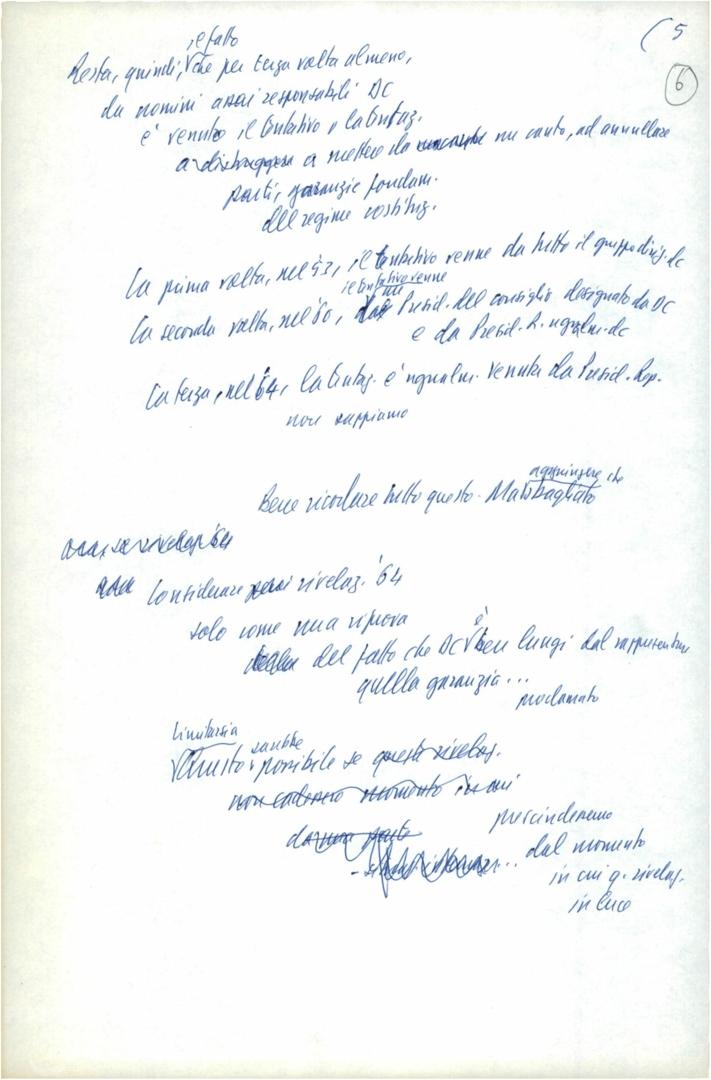 ( 5
6
il fatto
Resta, quindi, che per terza volta almeno,
da uomini assai responsabili DC
è venuto il tentativo o la tentaz.
a distruggere a mettere da un canto, ad annullare
parti, garanzie fondam.
del regime costituz.
La prima volta, nel 53, il tentativo venne da tutto il gruppo dirig. dc
il tentativo venne
La seconda volta, nel '60, Presid. del consiglio designato da DC
e da Presid. R. ugualm. dc
La terza, nel 64, la tentaz. è ugualm. venuta da Presid. Rep.
non sappiamo
aggiungere che
Bene ricordare tutto questo. Ma sbagliato
rivelaz '64
Considerare rivelaz. '64
solo come una riprova
è
del fatto che DC ben lungi dal rappresentare
quella garanzia...
proclamato
Limitarsi a
sarebbe
questo possibile se queste rivelaz.
non cadessero momento in cui
prescinderemo
da una parte
dal momento
in cui q. rivelaz.
in luce